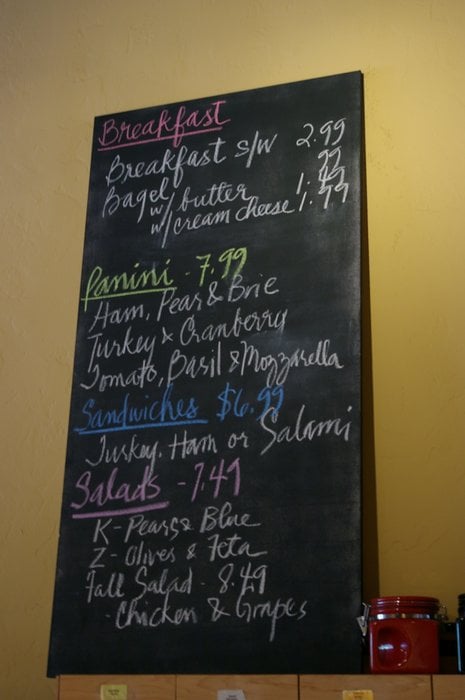 Breakfast
Breakfast s/w 2.99
Bagel .99
w/ butter 1.49
w/ cream cheese 1.99
Panini - 7.99
Ham, Pear & Brie
Turkey & Cranberry
Tomato, Basil & Mozzarella
Sandwiches $6.99
Turkey, Ham or Salami
Salads - 7.49
K - Pears & Blue
Z - Olives & Feta
Fall Salad - 8.49
- Chicken & Grapes